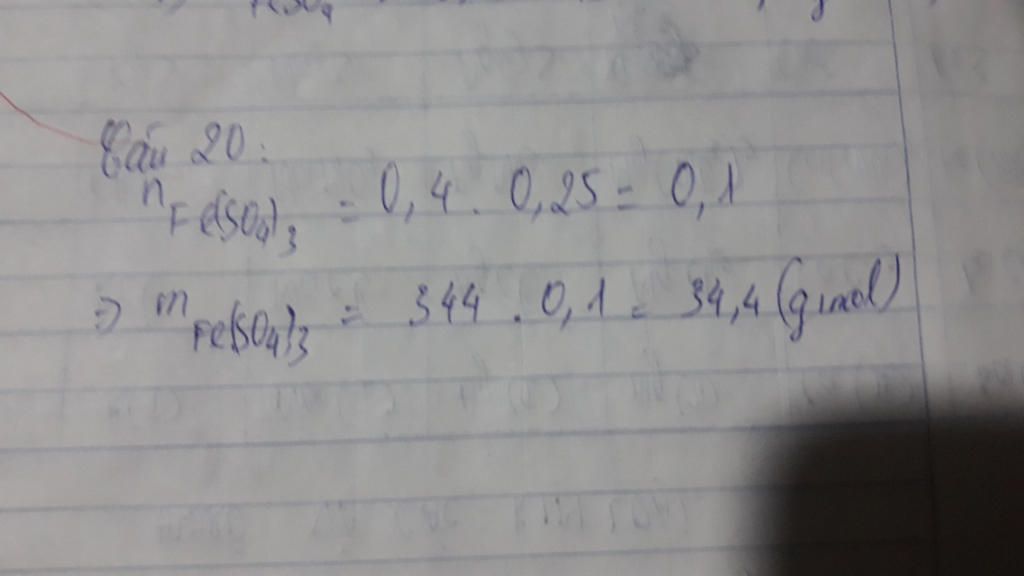 FeSO4
Câu 20:
nFe(SO4)3 = 0,4 . 0,25 = 0,1
=> mFe(SO4)3 = 344 . 0,1 = 34,4 (g/mol)